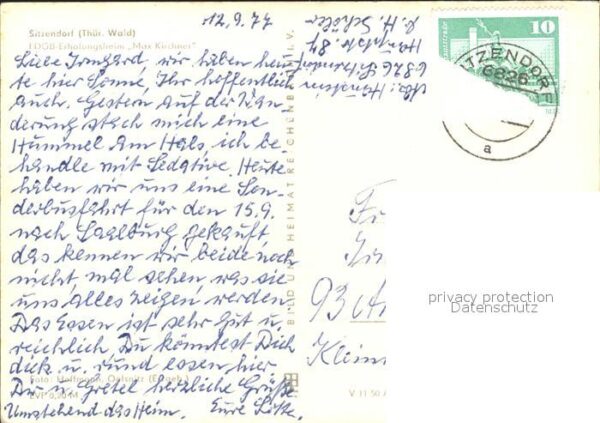 12.9.77
Sitzendorf (Thür. Wald)
FDGB-Erholungsheim „Max Kirchner“
Liebe Irmgard, wir haben heu
te hier Sonne, Ihr hoffentlich
auch. Gestern auf der Wan
derung stach mich eine
Hummel am Hals, ich be
handle mit Sedative. Heute
haben wir uns eine Son
derbusfahrt für den 15.9.
nach Saalburg gekauft,
das kennen wir beide noch
nicht, mal sehen, was sie
uns alles zeigen werden.
Das Essen ist sehr gut u.
reichlich, Du könntest Dich
dick u. rund essen hier.
Dir u. Gretel herzliche Grüße
Umstehend das Heim. Eure Lotte.
Foto: Hoffmann, Oelsnitz (Erzgeb.)
EVP 0,20 M
BILD UND HEIMAT REICHENBACH I. V.
V 11 50
6826 Sitzendorf
Hauptstr. 84
b. H. Schöler
10
SITZENDORF
6826
a
93
Klein
privacy protection
Datenschutz